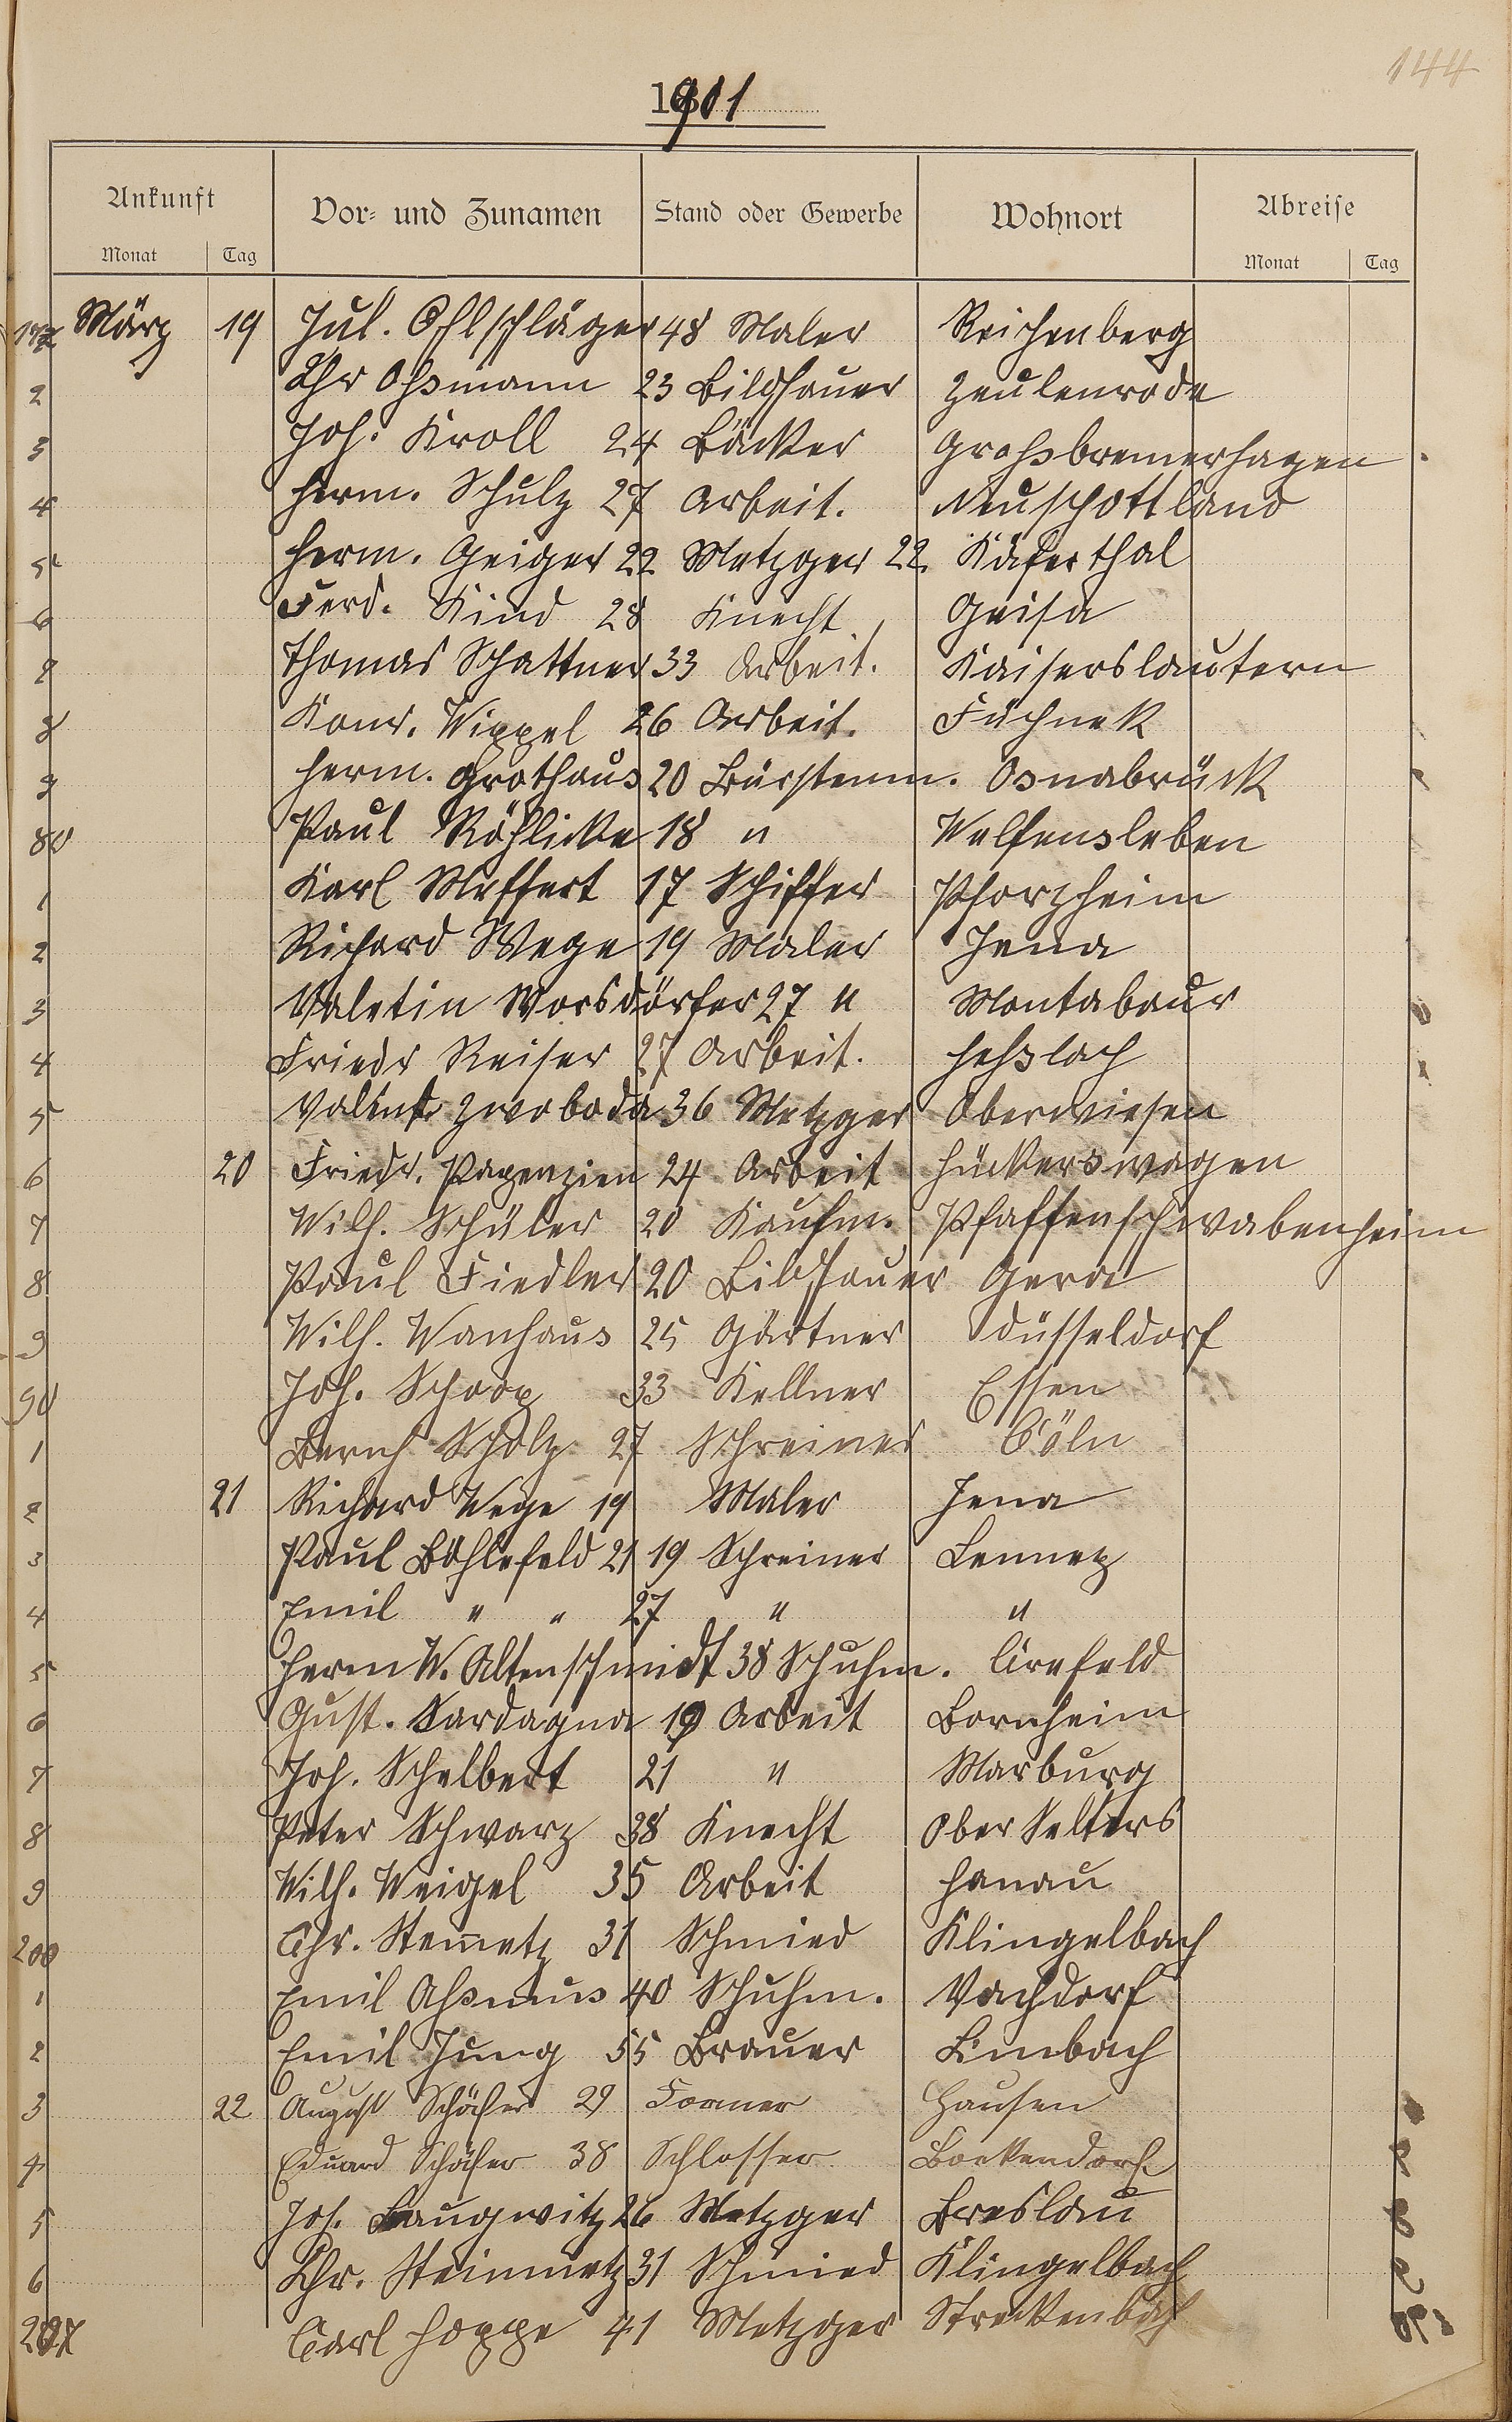 144
1901
Ankunft Vor- und Zunamen Stand oder Gewerbe Wohnort Abreise
Monat Tag Monat Tag
März 19 Jul. Ohlschläger 48 Maler Reichenberg
2 Chr Oßmann 23 Bildhauer Zeulenroda
3 Joh. Kroll 24 Bäcker Großbremerhagen
4 Herm. Schulz 27 Arbeit. Neuschottland
5 Herm. Geiger 22 Metzger 22 Käferthal
6 Ferd. Kind 28 Knecht Geisa
7 Thomas Schattner 33 Arbeit. Kaiserslautern
8 Konr. Wippel 26 Arbeit.
9 Herm. Grothaus 20 Bürstenm. Osnabrück
80 Paul Röhlicke 18 " Welfensleben
1 Karl Meffert 17 Schiffer Pforzheim
2 Richard Wege 19 Maler Jena
3 Valetin Worsdörfer 27 " Montabaur
4 Friedr Reiser 27 Arbeit. Heßlach
5 Valent. Zwoboda 36 Metzger Oberwiesen
6 20 Friedr. Papenzien 24 Arbeit Hückerswagen
7 Wilh. Schüler 20 Kaufm. Pfaffenschwabenheim
8 Paul Fiedler 20 Bildhauer Gera
9 Wilh. Wanhaus 25 Gärtner Düsseldorf
90 Joh. Schoop 33 Kellner Essen
1 Bernh Scholz 27 Schreiner Cöln
2 21 Richard Wege 19 Maler Jena
3 Paul Böhlefeld 21 19 Schreiner Lennep
4 Emil " " 27 " "
5 Herm W. Altenschmidt 38 Schuhm. Crefeld
6 Gust. Sardagna 19 Arbeit Bornheim
7 Joh. Schelbert 21 " Marburg
8 Peter Schwarz 38 Knecht Ober Selters
9 Wilh. Weigel 35 Arbeit Hanau
200 Chr. Stem̅etz 31 Schmied Klingelbach
1 Emil Aßmus 40 Schuhm. Vachdorf
2 Emil Jung 55 Brauer Limbach
3 22 August Schäfer 29 Former Hausen
4 Eduard Schäfer 38 Schlosser Bockendorf
5 Jos. Laugwitz 26 Metzger Breslau
6 Chr. Steinmetz 31 Schmied Klingelbach
207 Carl Hoppe 41 Metzger Streckenbach